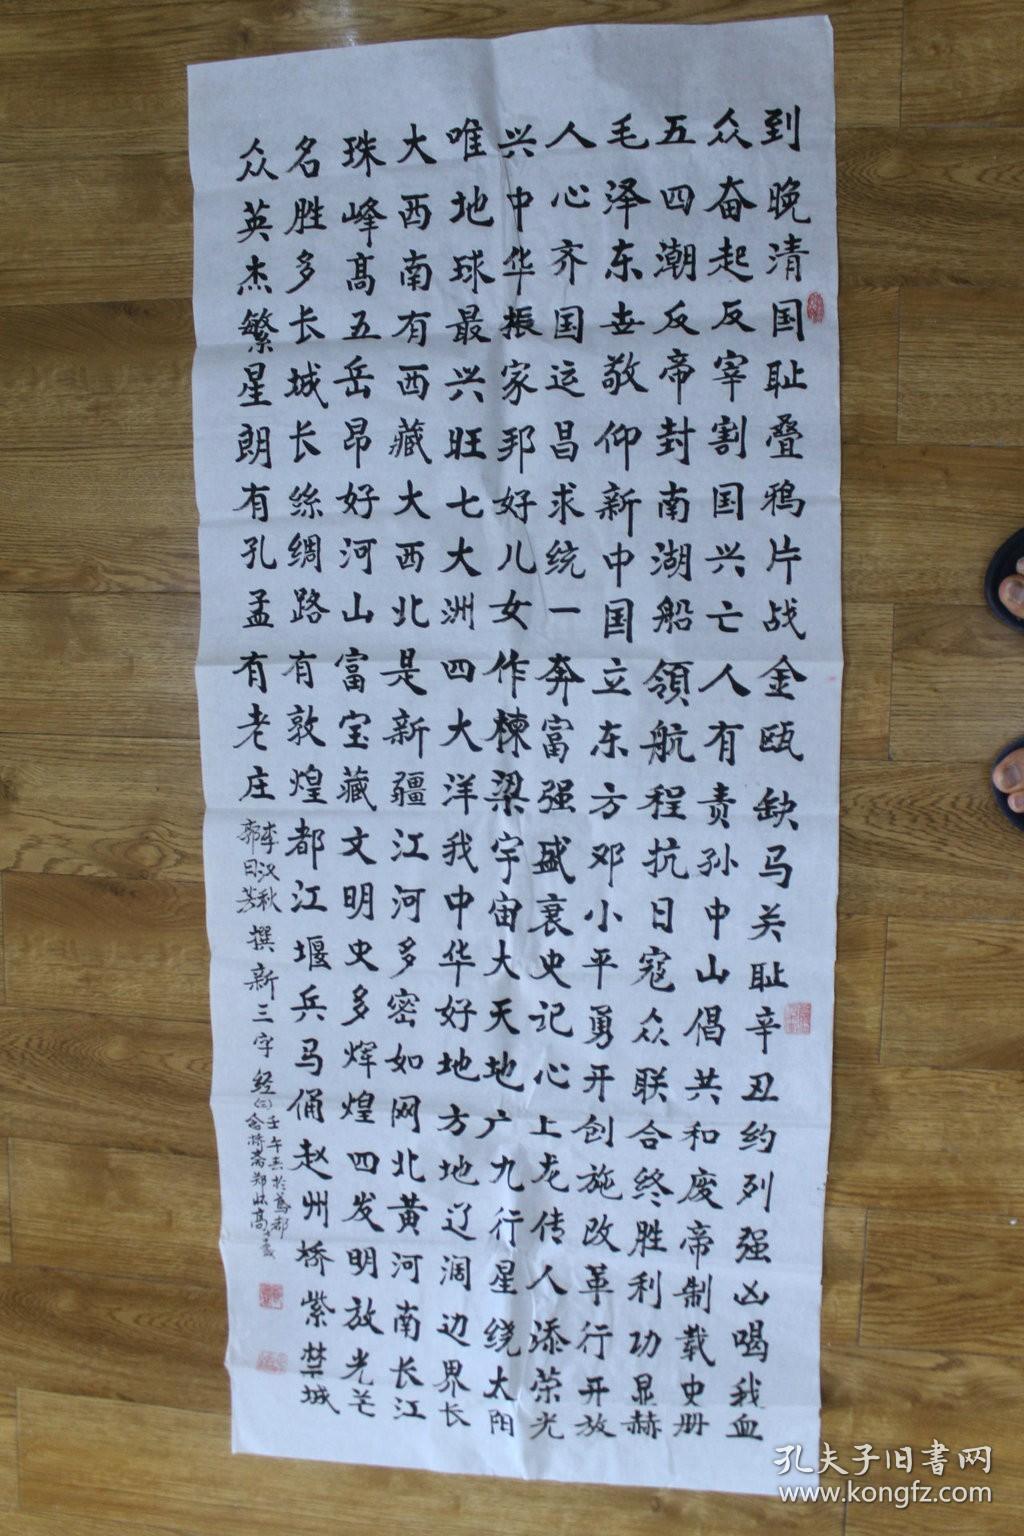 到晚清国耻叠鸦片战金瓯缺马关耻辛丑约列强凶喝我血
众奋起反宰割国兴亡人有责孙中山倡共和废帝制载史册
五四潮反帝封南湖船领航程抗日寇众联合终胜利功显赫
毛泽东世敬仰新中国立东方邓小平勇开创施改革行开放
人心齐国运昌求统一奔富强盛衰史记心上龙传人添荣光
兴中华振家邦好儿女作栋梁宇宙大天地广九行星绕太阳
唯地球最兴旺七大洲四大洋我中华好地方地辽阔边界长
大西南有西藏大西北是新疆江河多密如网北黄河南长江
珠峰高五岳昂好河山富宝藏文明史多辉煌四发明放光芒
名胜多长城长丝绸路有敦煌都江堰兵马俑赵州桥紫禁城
众英杰繁星朗有孔孟有老庄
李汉秋
郭日芳
撰新三字经(三)
壬午 于鸢都
郑 高
孔夫子旧书网
www.kongfz.com